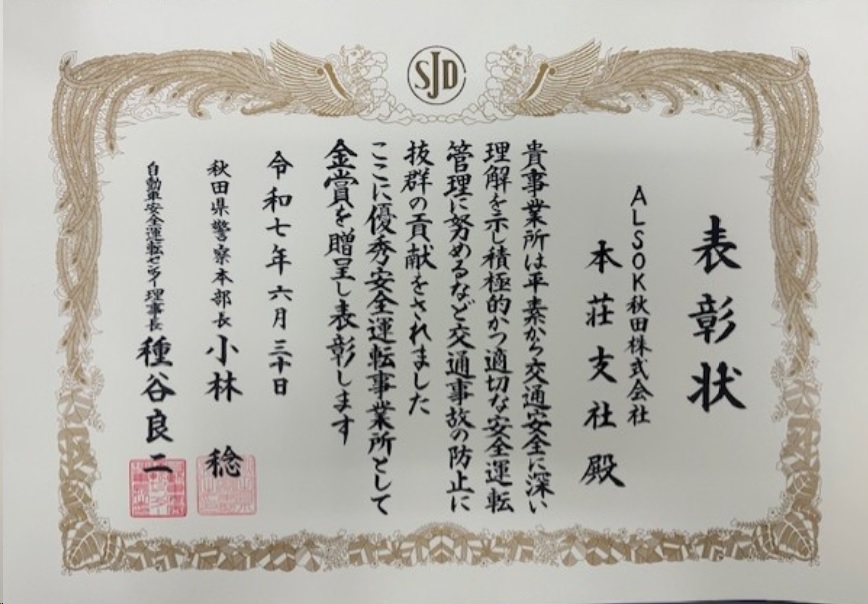 SJD
表彰状
ALSOK秋田株式会社
本荘支社殿
貴事業所は平素から交通安全に深い
理解を示し積極的かつ適切な安全運転
管理に努めるなど交通事故の防止に
抜群の貢献をされました
ここに優秀安全運転事業所として
金賞を贈呈し表彰します
令和七年六月三十日
秋田県警察本部長 小林 稔
自動車安全運転センター理事長 種谷良二